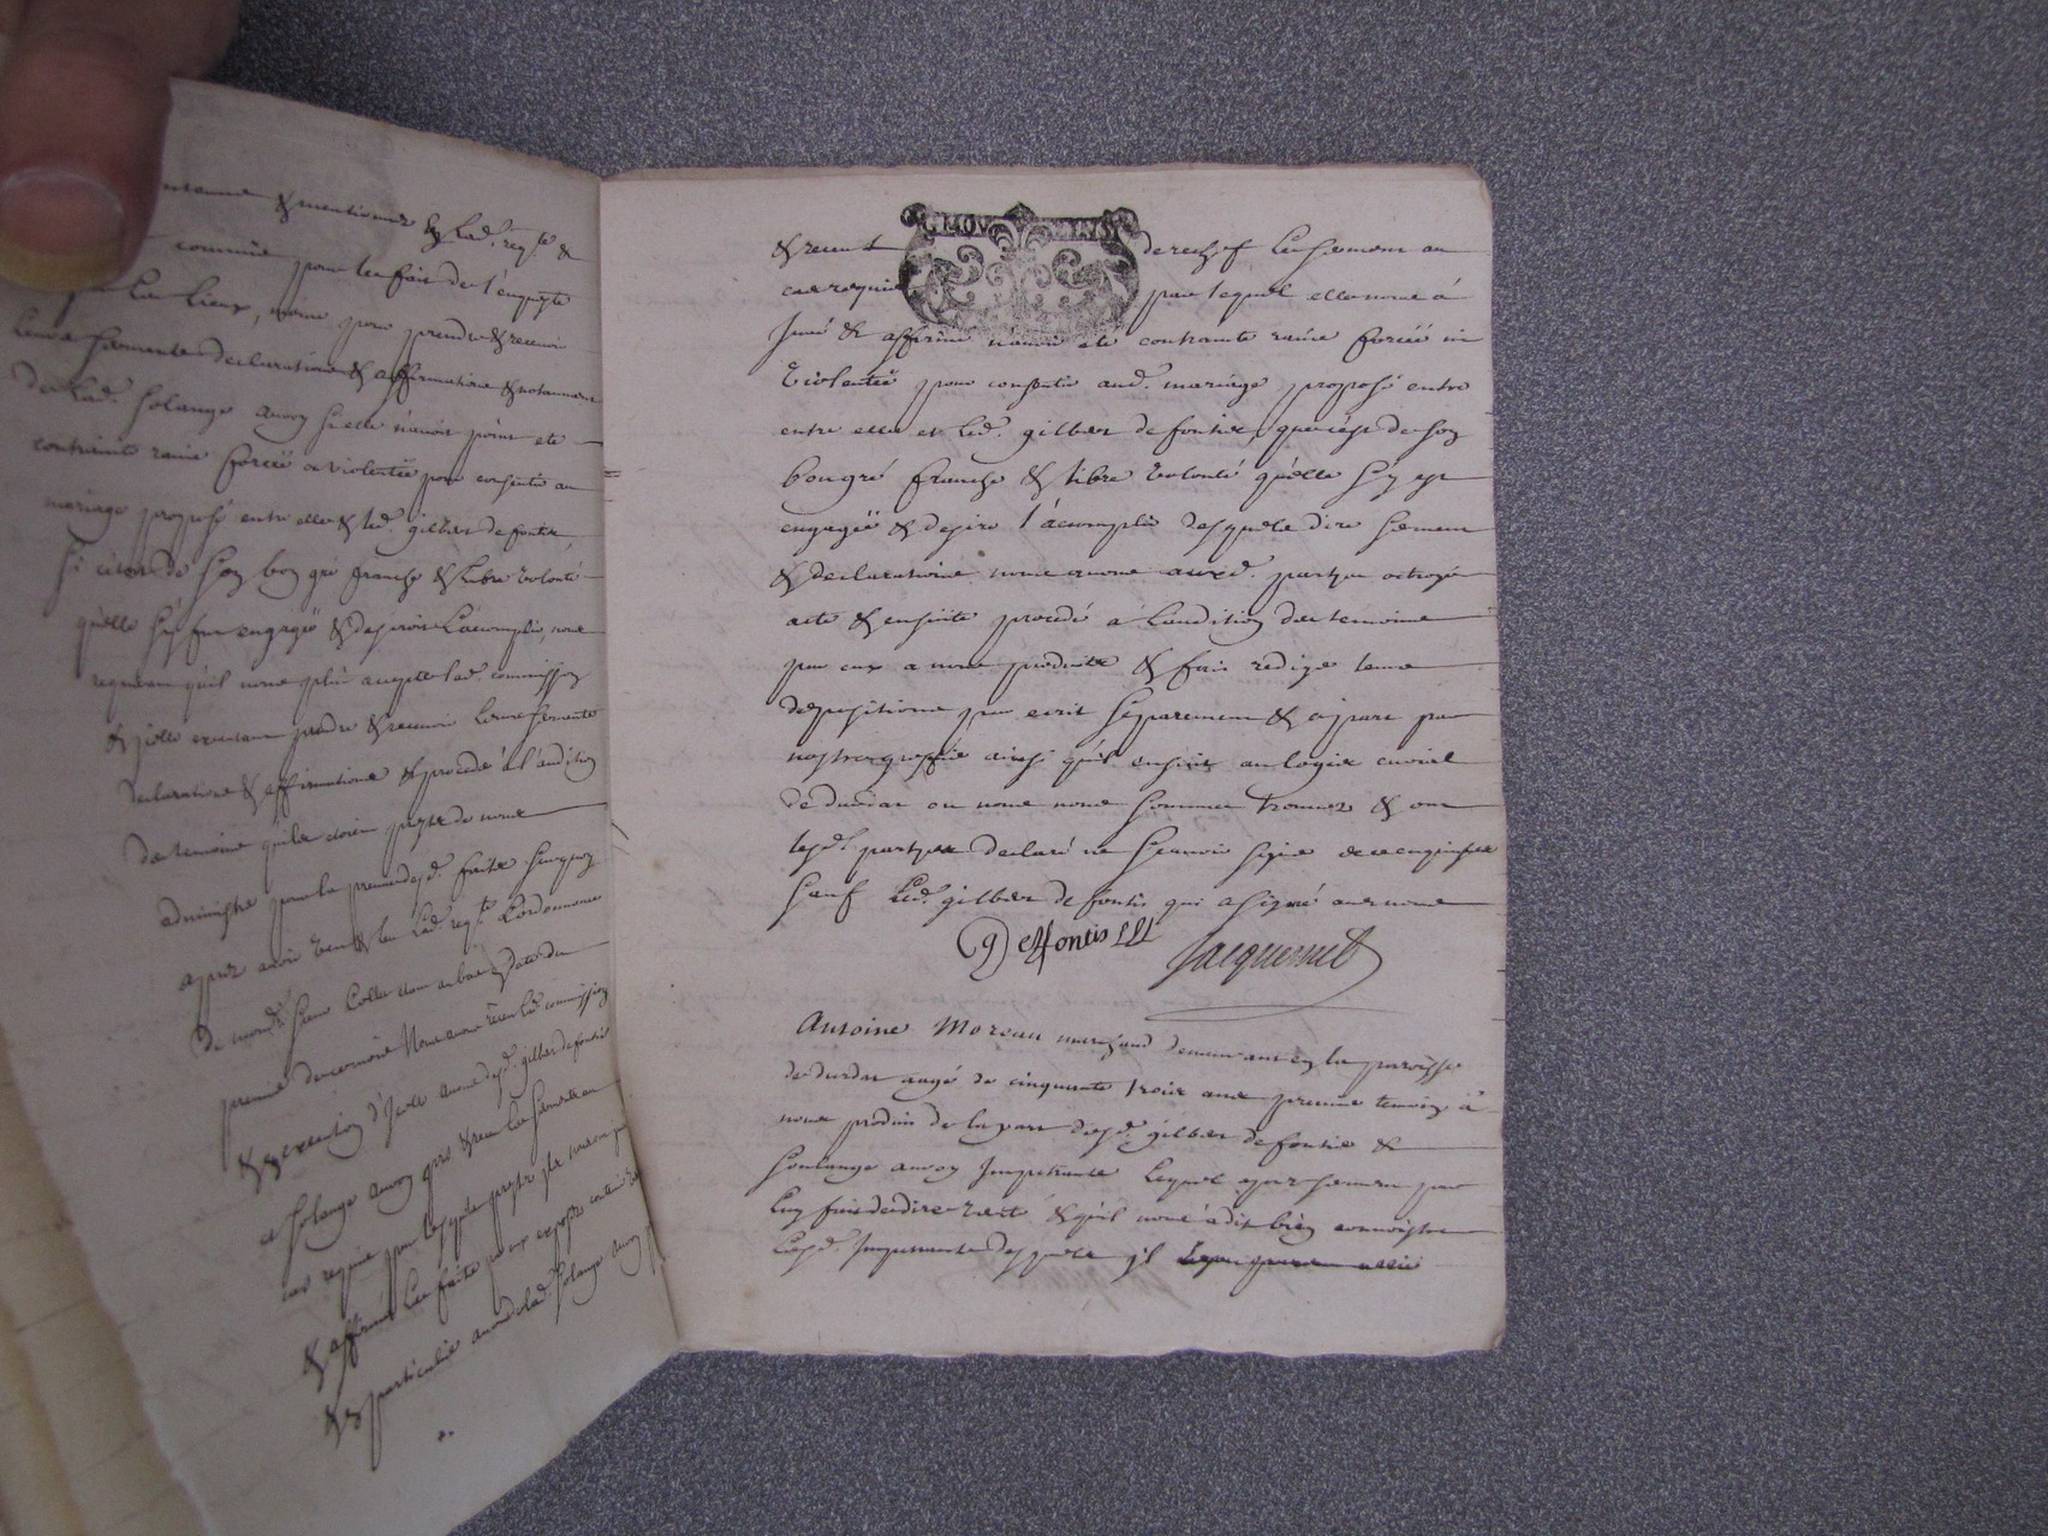 & mentionnez Lad. reqte &
commise pour le fait de l'enqueste
Les Lieux, même pour prendre & recevoir
Leurs serments declarations & affirmations & notamment
de Lad. Solange auvoy si elle n'avoit point ete
contrainte ravie forcéé ou violentéé pour consentir au
mariage proposé entre elle & led. gilber de fontis,
si c'etoit de son bon gré franche & libre volonté
qu'elle s'y fut engagéé & desiroit L'acomplir, nous
requerant qu'il nous plût accepter lad. commission
& jcelle executant prendre & recevoir leurs serments
declarations & affirmations & procedé à l'audition
des temoins qu'ils etoient prests de nous
administrer pour la preuve desd. faits surquoy
apres avoir veu & leu Lad. reqte L'ordonnance
de mond. sieur Collet etant au bas en date du
premier de ce mois Nous avons receu lad. commission
& en execution d'jcelle avons desd. gilber de fontis
et Solange auvoy pris & receu Les serments au
cas requis par lesquels
& affirmé Les faits par eux exposés contenir
& en particulier avons de lad. Solange auvoy
& receu derechef Le serment au
cas requis par lequel elle nous à
Juré & affirmé n'avoir ete contrainte ravie forcéé ni
violentéé pour consentir aud. mariage proposé entre
entre elle et Led. gilber de fontis, que c'est de son
bon gré franche & libre volonté qu'elle s'y est
engagéé & desire l'acomplir desquels dire serment
& declarations nous avons auxd. parties octroyé
acte & ensuite procedé a L'audition des temoins
par eux a nous produits & fait rediger leurs
depositions par ecrit separement & apart par
nostre greffier ainsi qu'il ensuit au logis curial
de durdat ou nous nous sommes trouvez & ont
lesd. parties declaré ne sçavoir signer de ce enquises
sauf Led. gilber de fontis qui a signé avec nous
G Deffontis
Jacquemet
Antoine Moreau marchand demeurant en la paroisse
de durdat aagé de cinquante trois ans premier temoin à
nous produit de la part desd. gilber de fontis &
Soulange auvoy Impetrants Lequel apres serment par
Luy fait de dire verité & qu'il nous à dit bien connoistre
Lesd. Impetrants desquels jl